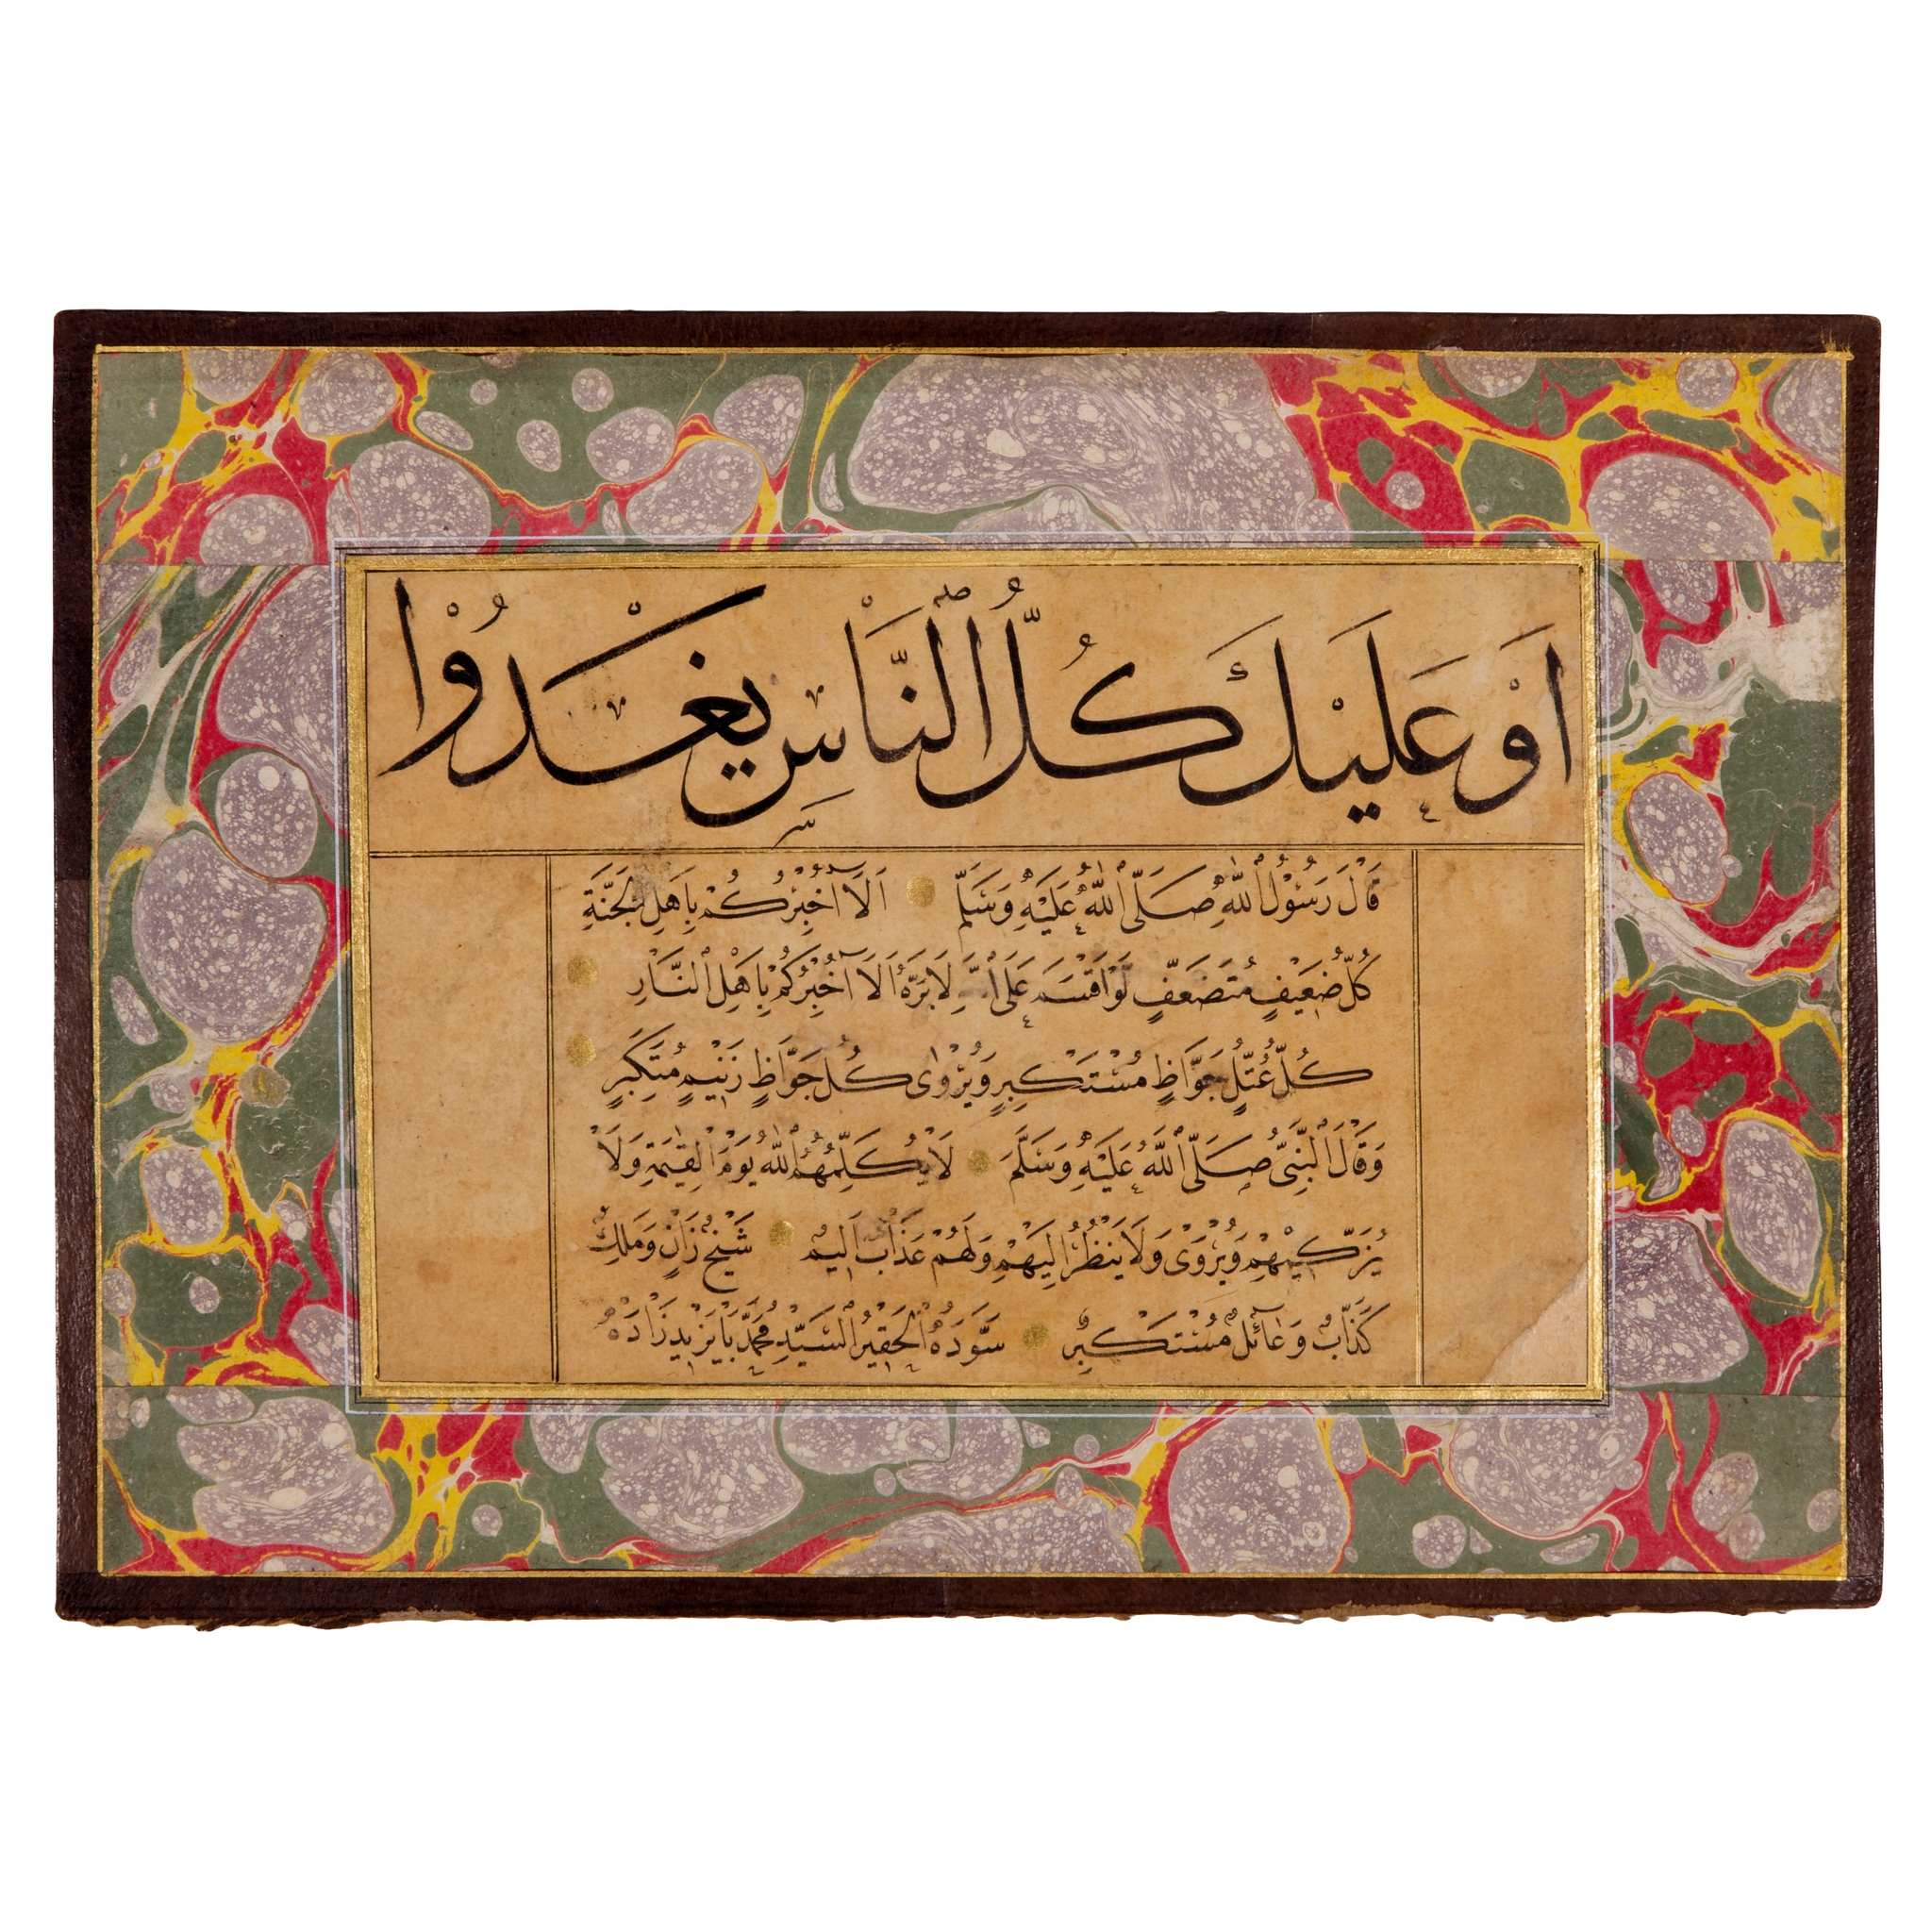 اَوْ عَلَيْكَ كُلُّ النَّاسِ يَغْدُوْا
قَالَ رَسُوْلُ اللّٰهِ صَلَّى اللّٰهُ عَلَيْهِ وَسَلَّمَ اَلَآ اُخْبِرُكُمْ بِاَهْلِ الْجَنَّةِ
كُلُّ ضَعِيْفٍ مُتَضَعَّفٍ لَوْ اَقْسَمَ عَلَى اللّٰهِ لَاَبَرَّهُ اَلَآ اُخْبِرُكُمْ بِاَهْلِ النَّارِ
كُلُّ عُتُلٍّ جَوَّاظٍ مُسْتَكْبِرٍ وَيُرْوٰى كُلُّ جَوَّاظٍ زَنِيْمٍ مُتَكَبِّرٍ
وَقَالَ النَّبِىُّ صَلَّى اللّٰهُ عَلَيْهِ وَسَلَّمَ لَا يُكَلِّمُهُمُ اللّٰهُ يَوْمَ الْقِيٰمَةِ وَلَا
يُزَكِّيْهِمْ وَيُرْوٰى وَلَا يَنْظُرُ اِلَيْهِمْ وَلَهُمْ عَذَابٌ اَلِيْمٌ شَيْخٌ زَانٍ وَمَلِكٌ
كَذَّابٌ وَعَآئِلٌ مُسْتَكْبِرٌ سَوَّدَهُ الْحَقِيْرُ السَّيِّدُ مُحَمَّدْ بَايَزِيْدْ زَادَهْ